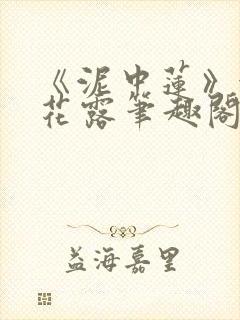 《泥中蓮》
花露笔趣阁
益海嘉里